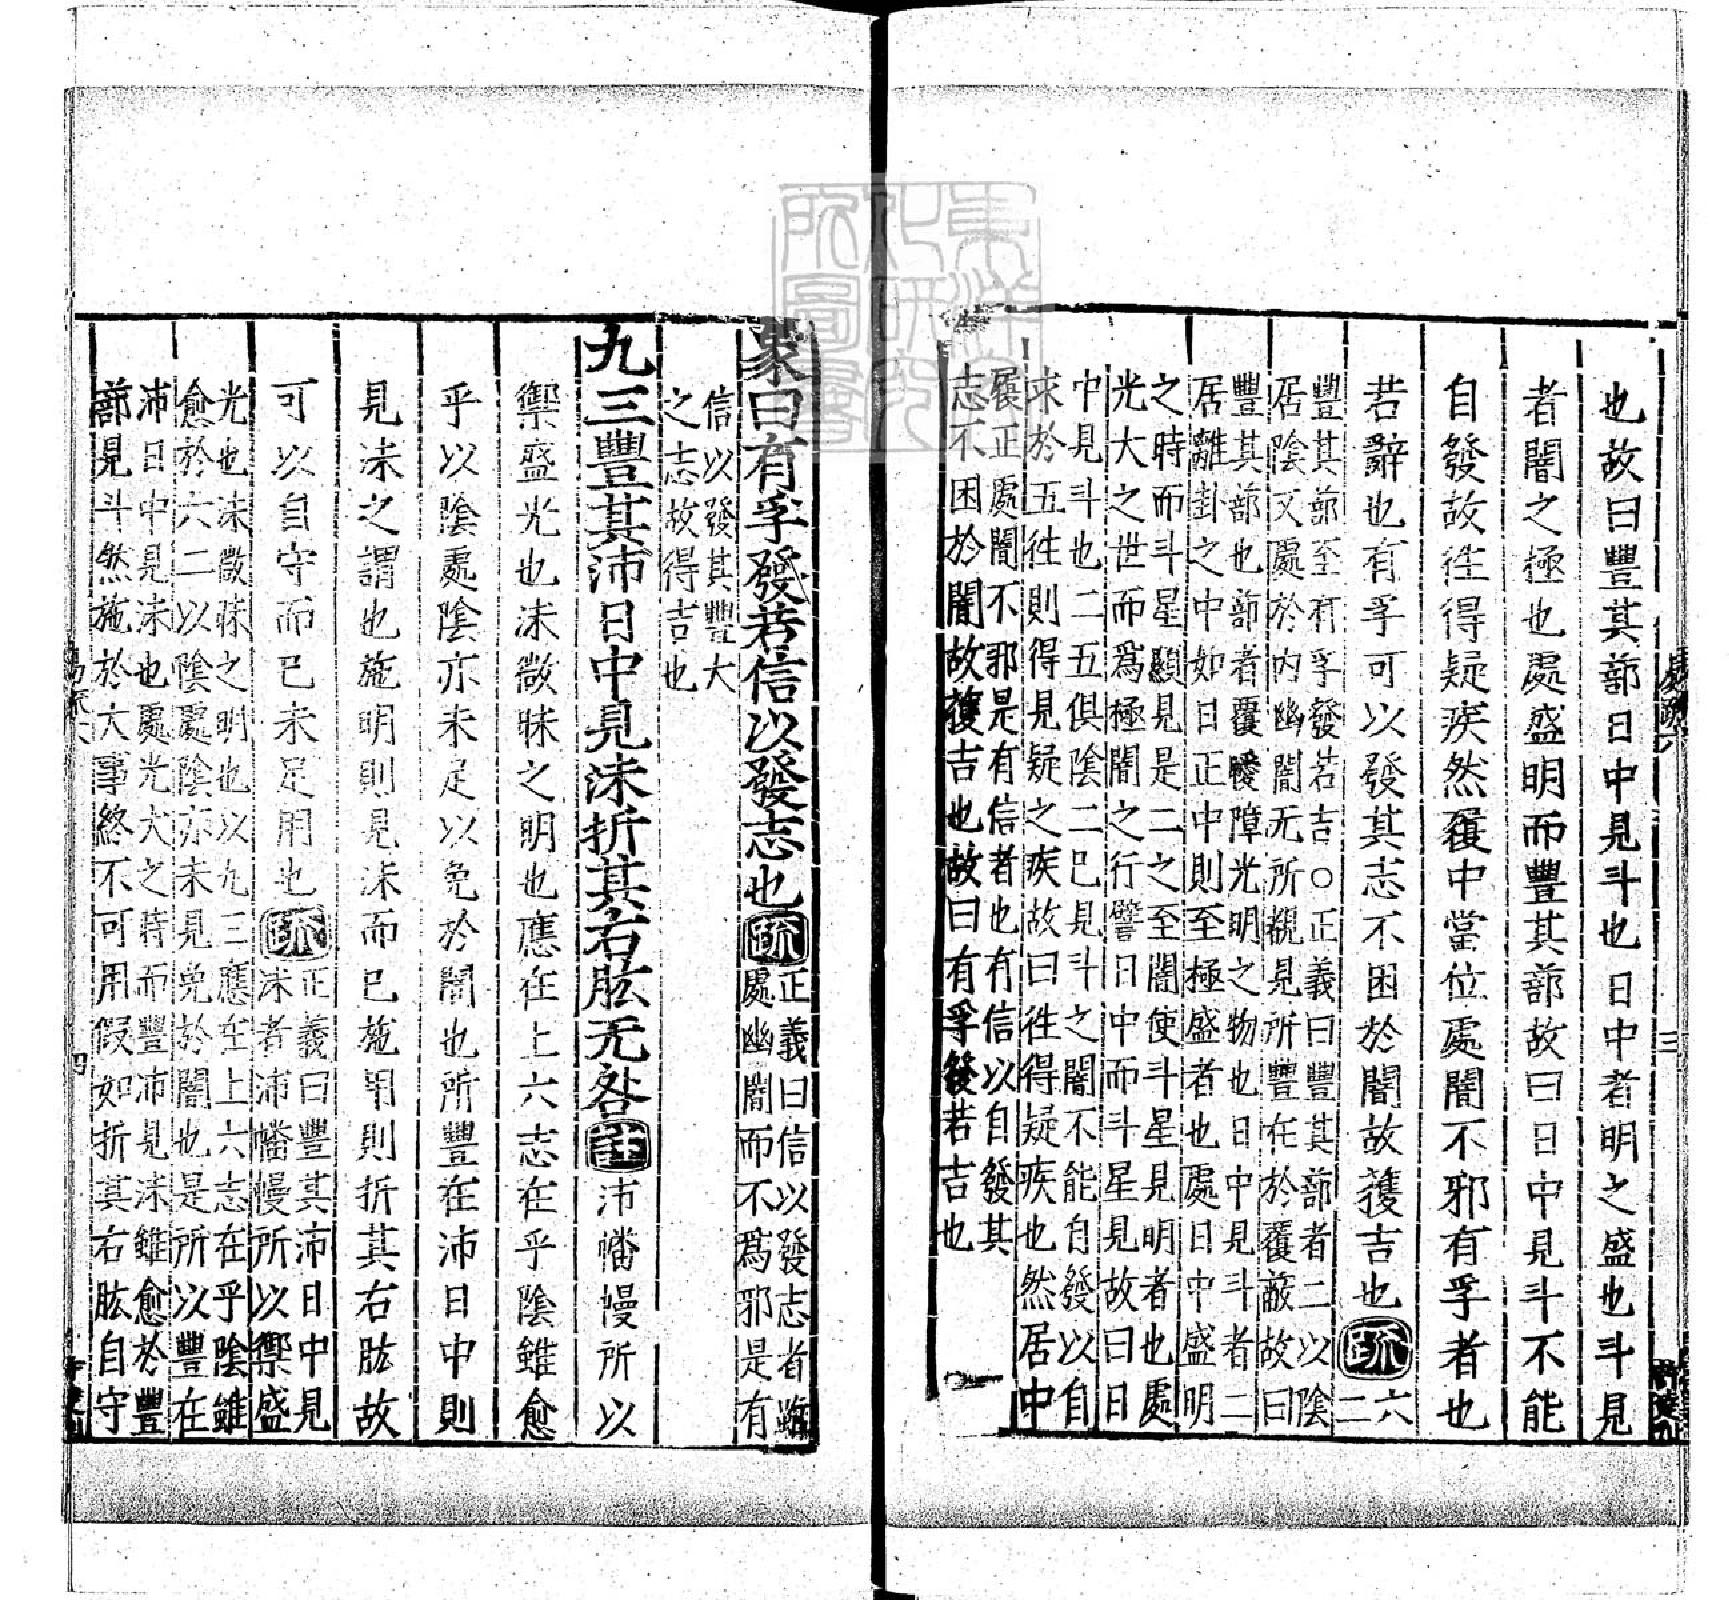 也故曰豐其蔀日中見斗也日中者明之盛也斗見
者闇之極也處盛明而豐其蔀故曰日中見斗不能
自發故徃得疑疾然履中當位處闇不邪有孚者也
若辭也有孚可以發其志不困於闇故獲吉也疏六二
豐其蔀至有孚發若吉○正義曰豐其蔀者二以陰
居陰又處於内幽闇无所覩見所豐在於覆蔽故曰
豐其蔀也蔀者覆曖障光明之物也日中見斗者二
居離卦之中如日正中則至極盛者也處日中盛明
之時而斗星顯見是二之至闇使斗星見明者也處
光大之世而爲極闇之行譬日中而斗星見故曰日
中見斗也二五俱陰二巳見斗之闇不能自發以自
求於五徃則得見疑之疾故曰徃得疑疾也然居中
履正處闇不邪是有信者也有信以自發其
志不困於闇故獲吉也故曰有孚發若吉也
象曰有孚發若信以發志也疏
正義曰信以發志者雖
處幽闇而不爲邪是有
信以發其豐大
之志故得吉也
九三豐其沛日中見沬折其右肱无咎注沛幡幔所以
禦盛光也沬微昧之明也應在上六志在乎陰雖愈
乎以陰處陰亦未足以免於闇也所豐在沛日中則
見沬之謂也施明則見沬而巳施用則折其右肱故
可以自守而巳未足用也疏
正義曰豐其沛日中見
沬者沛幡幔所以禦盛
光也沬微昧之明也以九三應在上六志在乎陰雖
愈於六二以陰處陰亦未見免於闇也是所以豐在
沛日中見沬也處光大之時而豐沛見沬雖愈於豐
蔀見斗然施於大事終不可用假如折其右肱自守